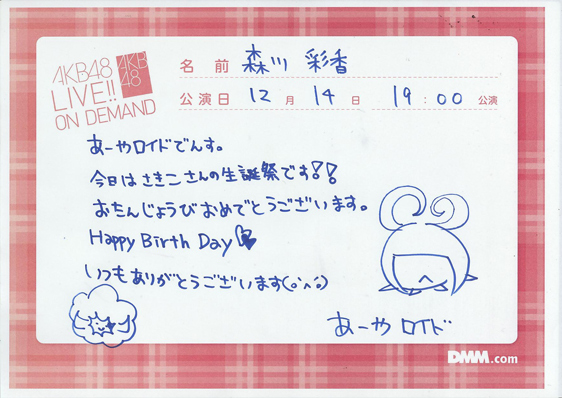 AKB48
LIVE!!
ON DEMAND
AKB
48
名前 森川 彩香
公演日 12月 14日 19:00 公演
あーやロイドでんす。
今日はさきこさんの生誕祭です!!
おたんじょうびおめでとうございます。
Happy Birth Day
いつもありがとうございます(o'^'o)
あーやロイド
DMM.com